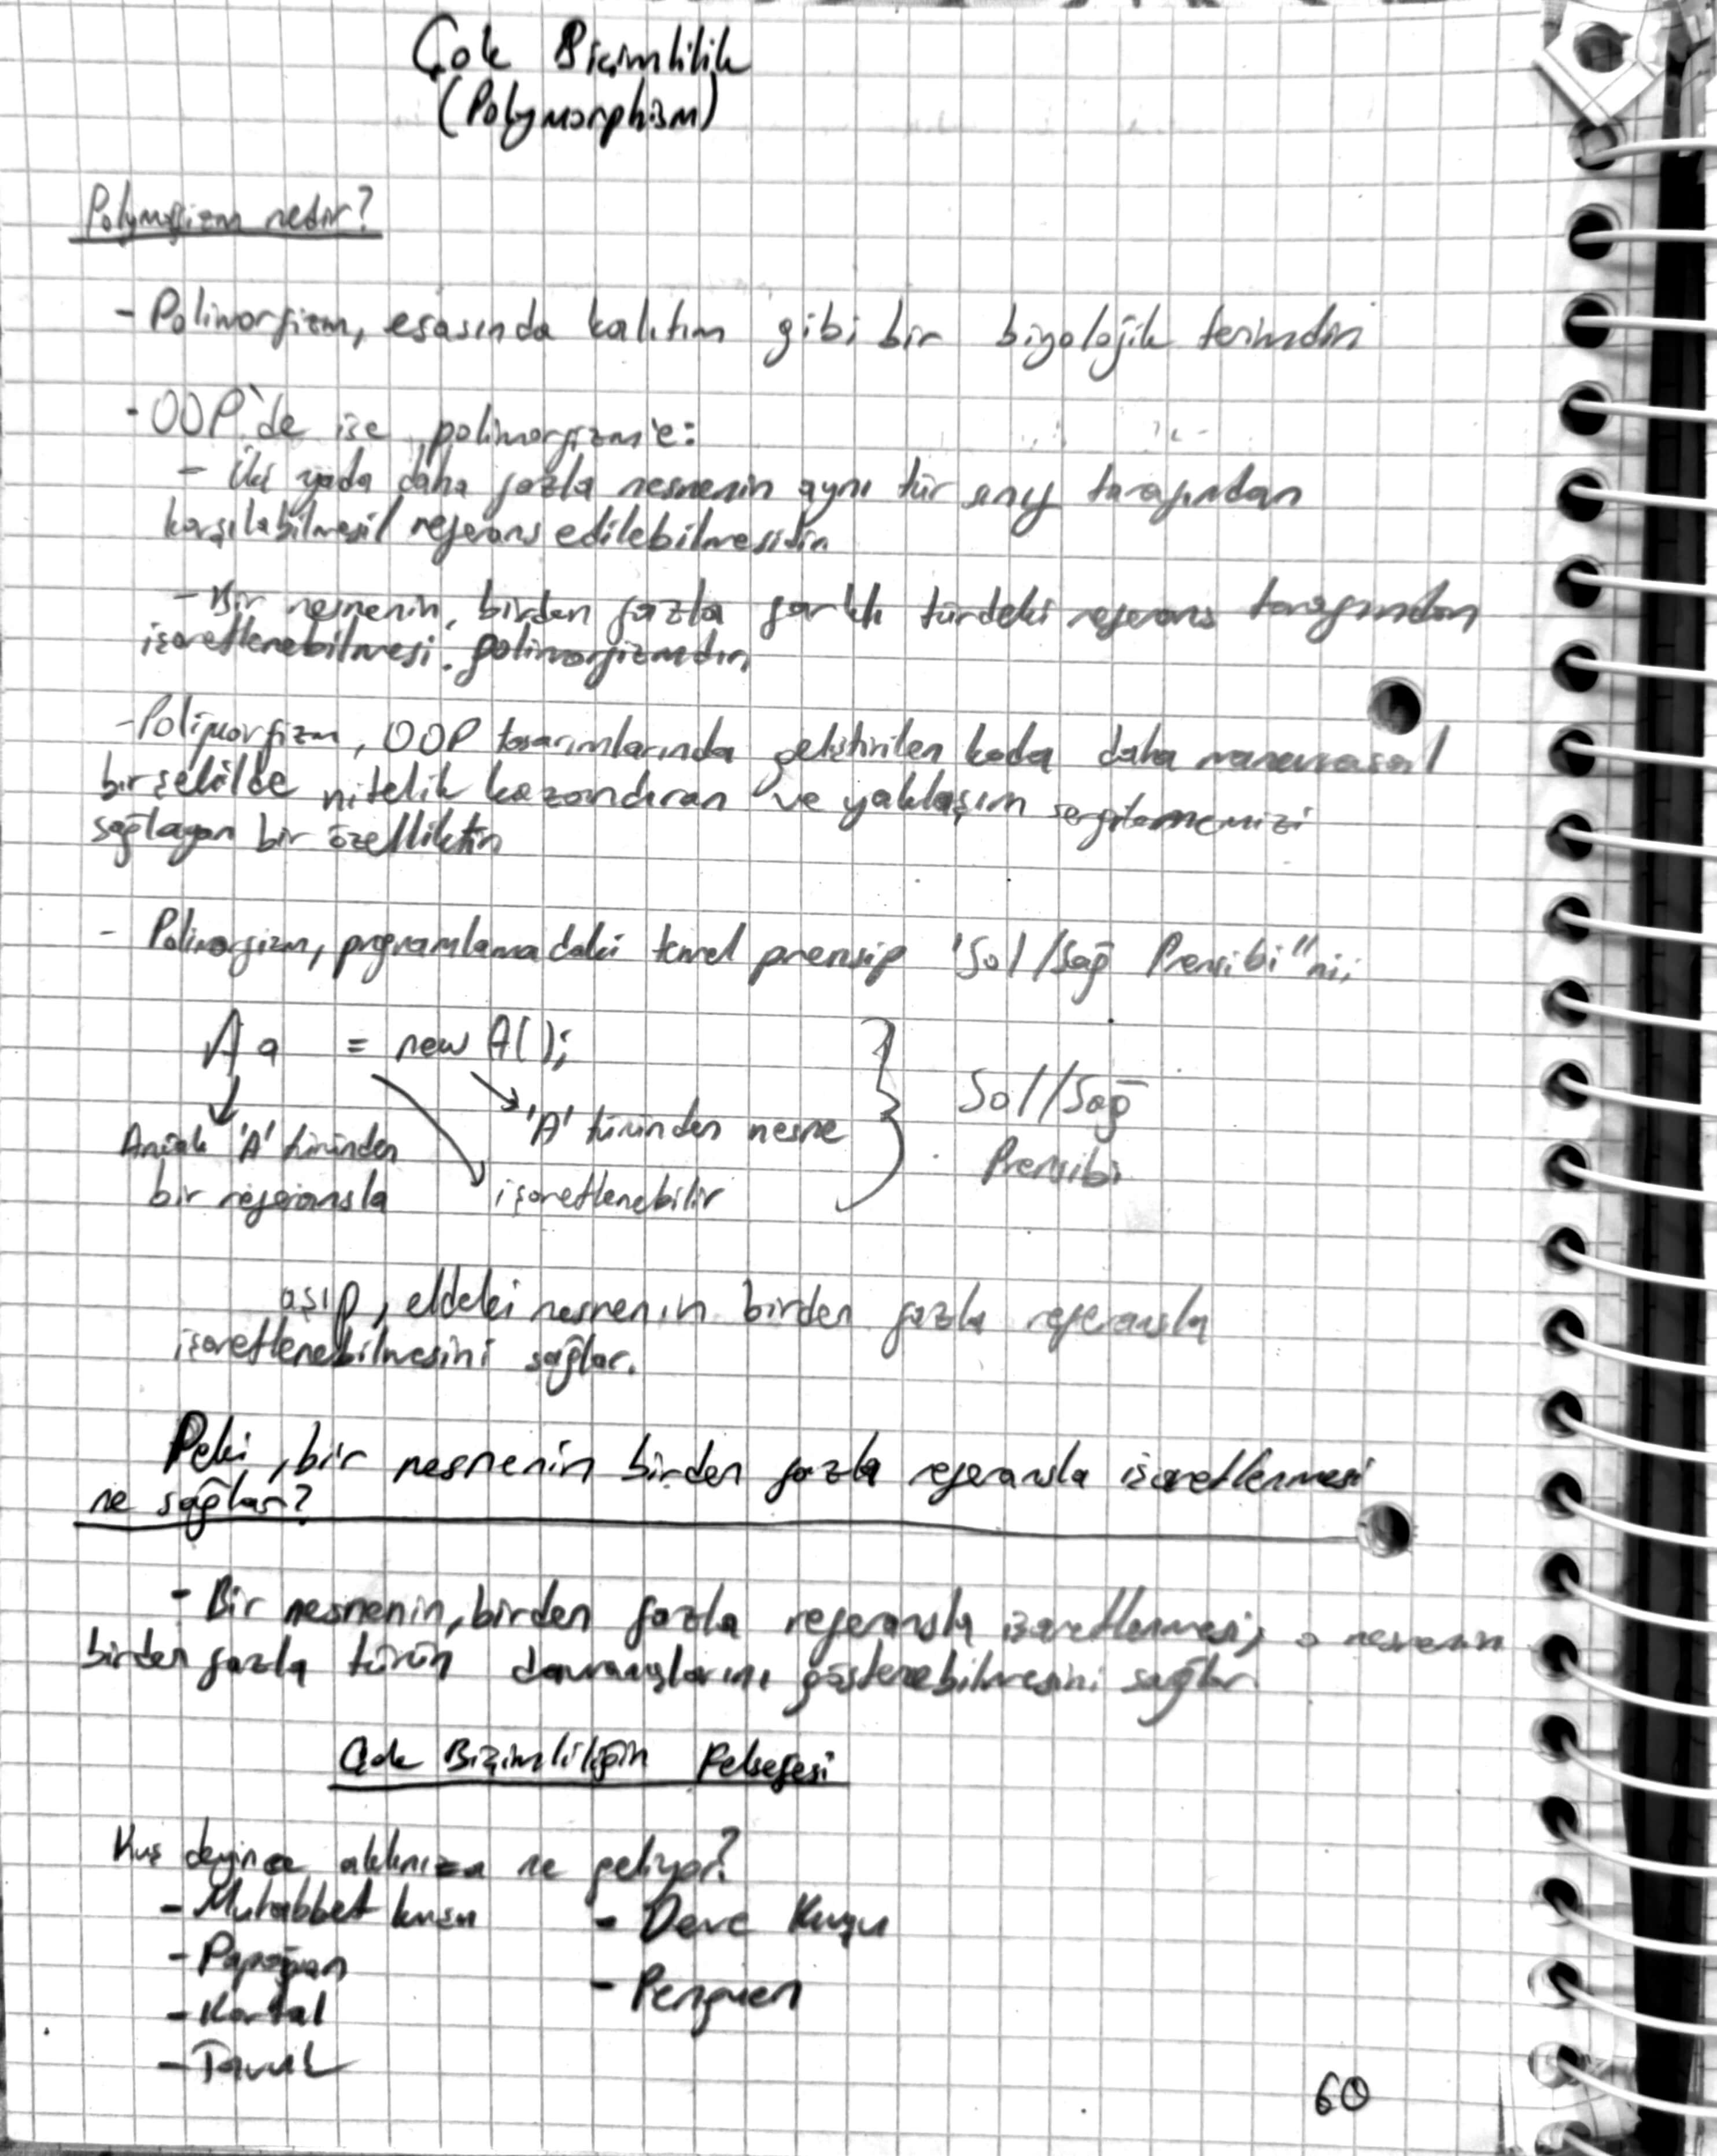 Çok Biçimlilik
(Polymorphism)
Polymofizm nedir?
- Polimorfizm, esasında kalıtım gibi bir biyolojik terimdir
- OOP'de ise polimorfizm'e:
- İki yada daha fazla nesnenin aynı tür sınıf tarafından
karşılabilmesi/ referans edilebilmesidir
- Bir nesnenin, birden fazla farklı türdeki referans tarafından
işaretlenebilmesi polimorfizmdir
- Polimorfizm, OOP tasarımlarında geliştirilen koda daha manevrasal
bir şekilde nitelik kazandıran ve yaklaşım sergilememizi
sağlayan bir özelliktir
- Polimorfizm, programlamadaki temel prensip "Sol/Sağ Prensibi"ni;
A a = new A();
'A' türünden nesne
Ancak 'A' türünden
bir referansla işaretlenebilir
Sol/Sağ
Prensibi
aşıp, eldeki nesnenin birden fazla referansla
işaretlenebilmesini sağlar.
Peki, bir nesnenin birden fazla referansla işaretlenmesi
ne sağlar?
- Bir nesnenin, birden fazla referansla işaretlenmesi, o nesnenin
birden fazla türün davranışlarını gösterebilmesini sağlar.
Çok Biçimliliğin Felsefesi
Kuş deyince aklınıza ne geliyor?
- Muhabbet kuşu
- Deve Kuşu
- Papağan
- Penguen
- Kartal
- Tavuk
60